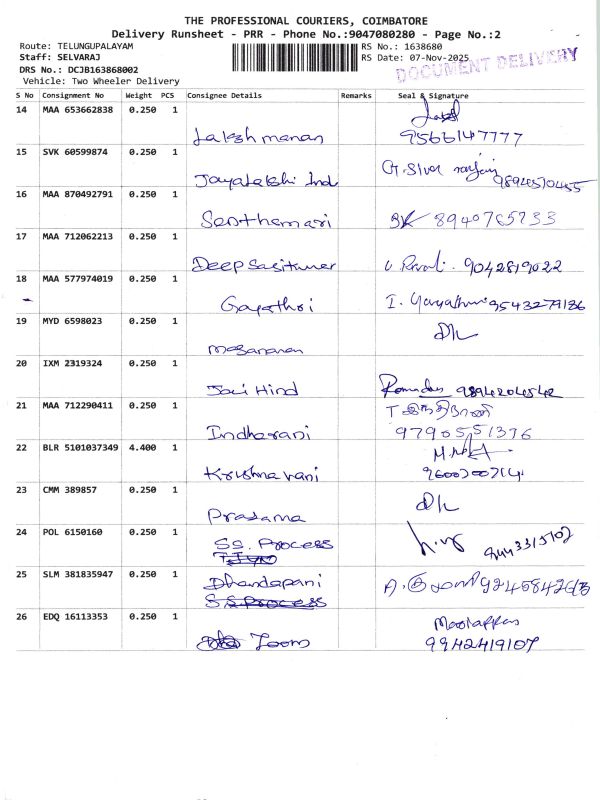 THE PROFESSIONAL COURIERS, COIMBATORE
Delivery Runsheet - PRR - Phone No.:9047080280 - Page No.:2
Route: TELUNGUPALAYAM RS No.: 1638680
Staff: SELVARAJ RS Date: 07-Nov-2025
DRS No.: DCJB163868002
Vehicle: Two Wheeler Delivery
DOCUMENT DELIVERY
S No Consignment No Weight PCS Consignee Details Remarks Seal & Signature
14 MAA 653662838 0.250 1
Lakshmanan 9566147777
15 SVK 60599874 0.250 1
Jayalakshi Ind
16 MAA 870492791 0.250 1
Senthamari 8940765733
17 MAA 712062213 0.250 1
Deep Sasikumer 9042819022
18 MAA 577974019 0.250 1
Gayathri I. Gayathri 9543279186
19 MYD 6598023 0.250 1
20 IXM 2319324 0.250 1
Jai Hind 9894204542
21 MAA 712290411 0.250 1
Indharani 9790551376
22 BLR 5101037349 4.400 1
Krishnavani
23 CMM 389857 0.250 1
Prasama
24 POL 6150160 0.250 1
SS. Process
25 SLM 381835947 0.250 1
Dhandapani
SS Process
26 EDQ 16113353 0.250 1
9942419107